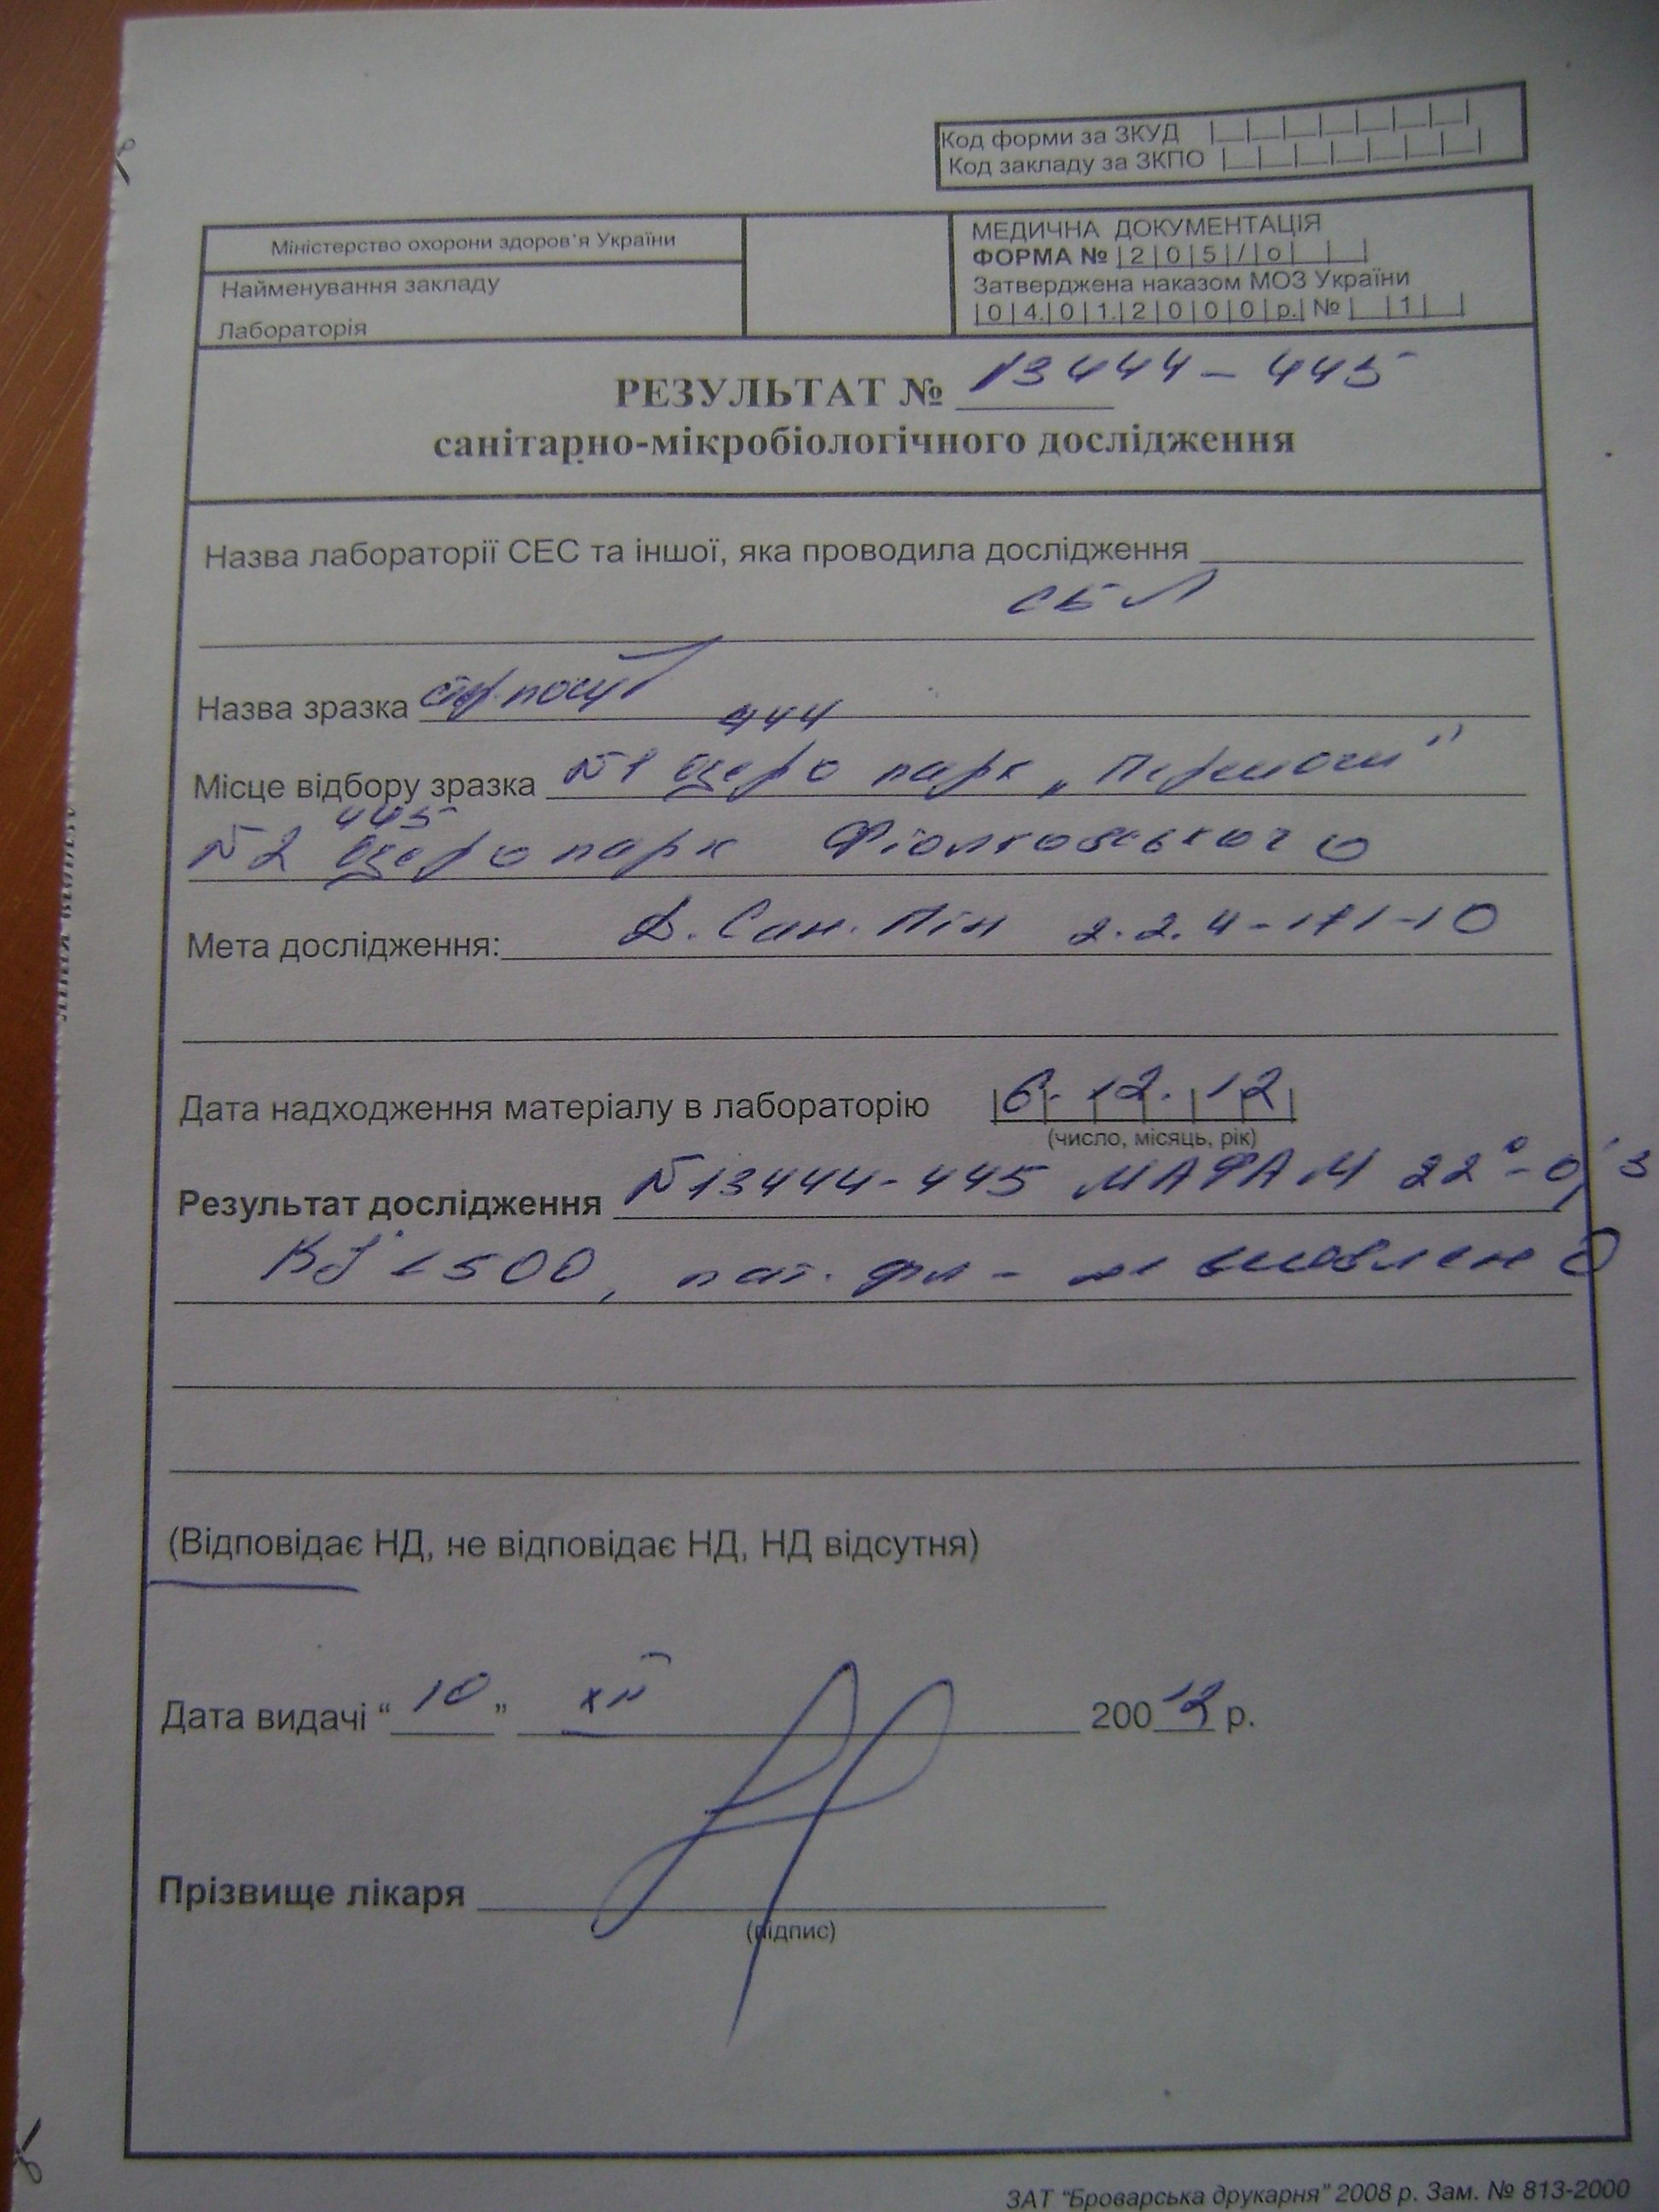 Код форми за ЗКУД
Код закладу за ЗКПО
Міністерство охорони здоров'я України
Найменування закладу
Лабораторія
МЕДИЧНА ДОКУМЕНТАЦІЯ
ФОРМА № |2|0|5|/|о| | |
Затверджена наказом МОЗ України
|0|4.|0|1.|2|0|0|0|р.| № | |1| |
РЕЗУЛЬТАТ № 13444-445
санітарно-мікробіологічного дослідження
Назва лабораторії СЕС та іншої, яка проводила дослідження
СБЛ
Назва зразка стер. посуд
444
Місце відбору зразка №1 озеро парк „Перемоги"
445
№2 озеро парк
Мета дослідження: Д. Сан. Пін 2.2.4-171-10
Дата надходження матеріалу в лабораторію 6. 12. 12
(число, місяць, рік)
Результат дослідження №13444-445 МАФАМ 22°-0,3
<500, пат. фл - не виявлено
(Відповідає НД, не відповідає НД, НД відсутня)
Дата видачі “ 10 ” XII 200 12 р.
Прізвище лікаря
(підпис)
ЗАТ “Броварська друкарня” 2008 р. Зам. № 813-2000